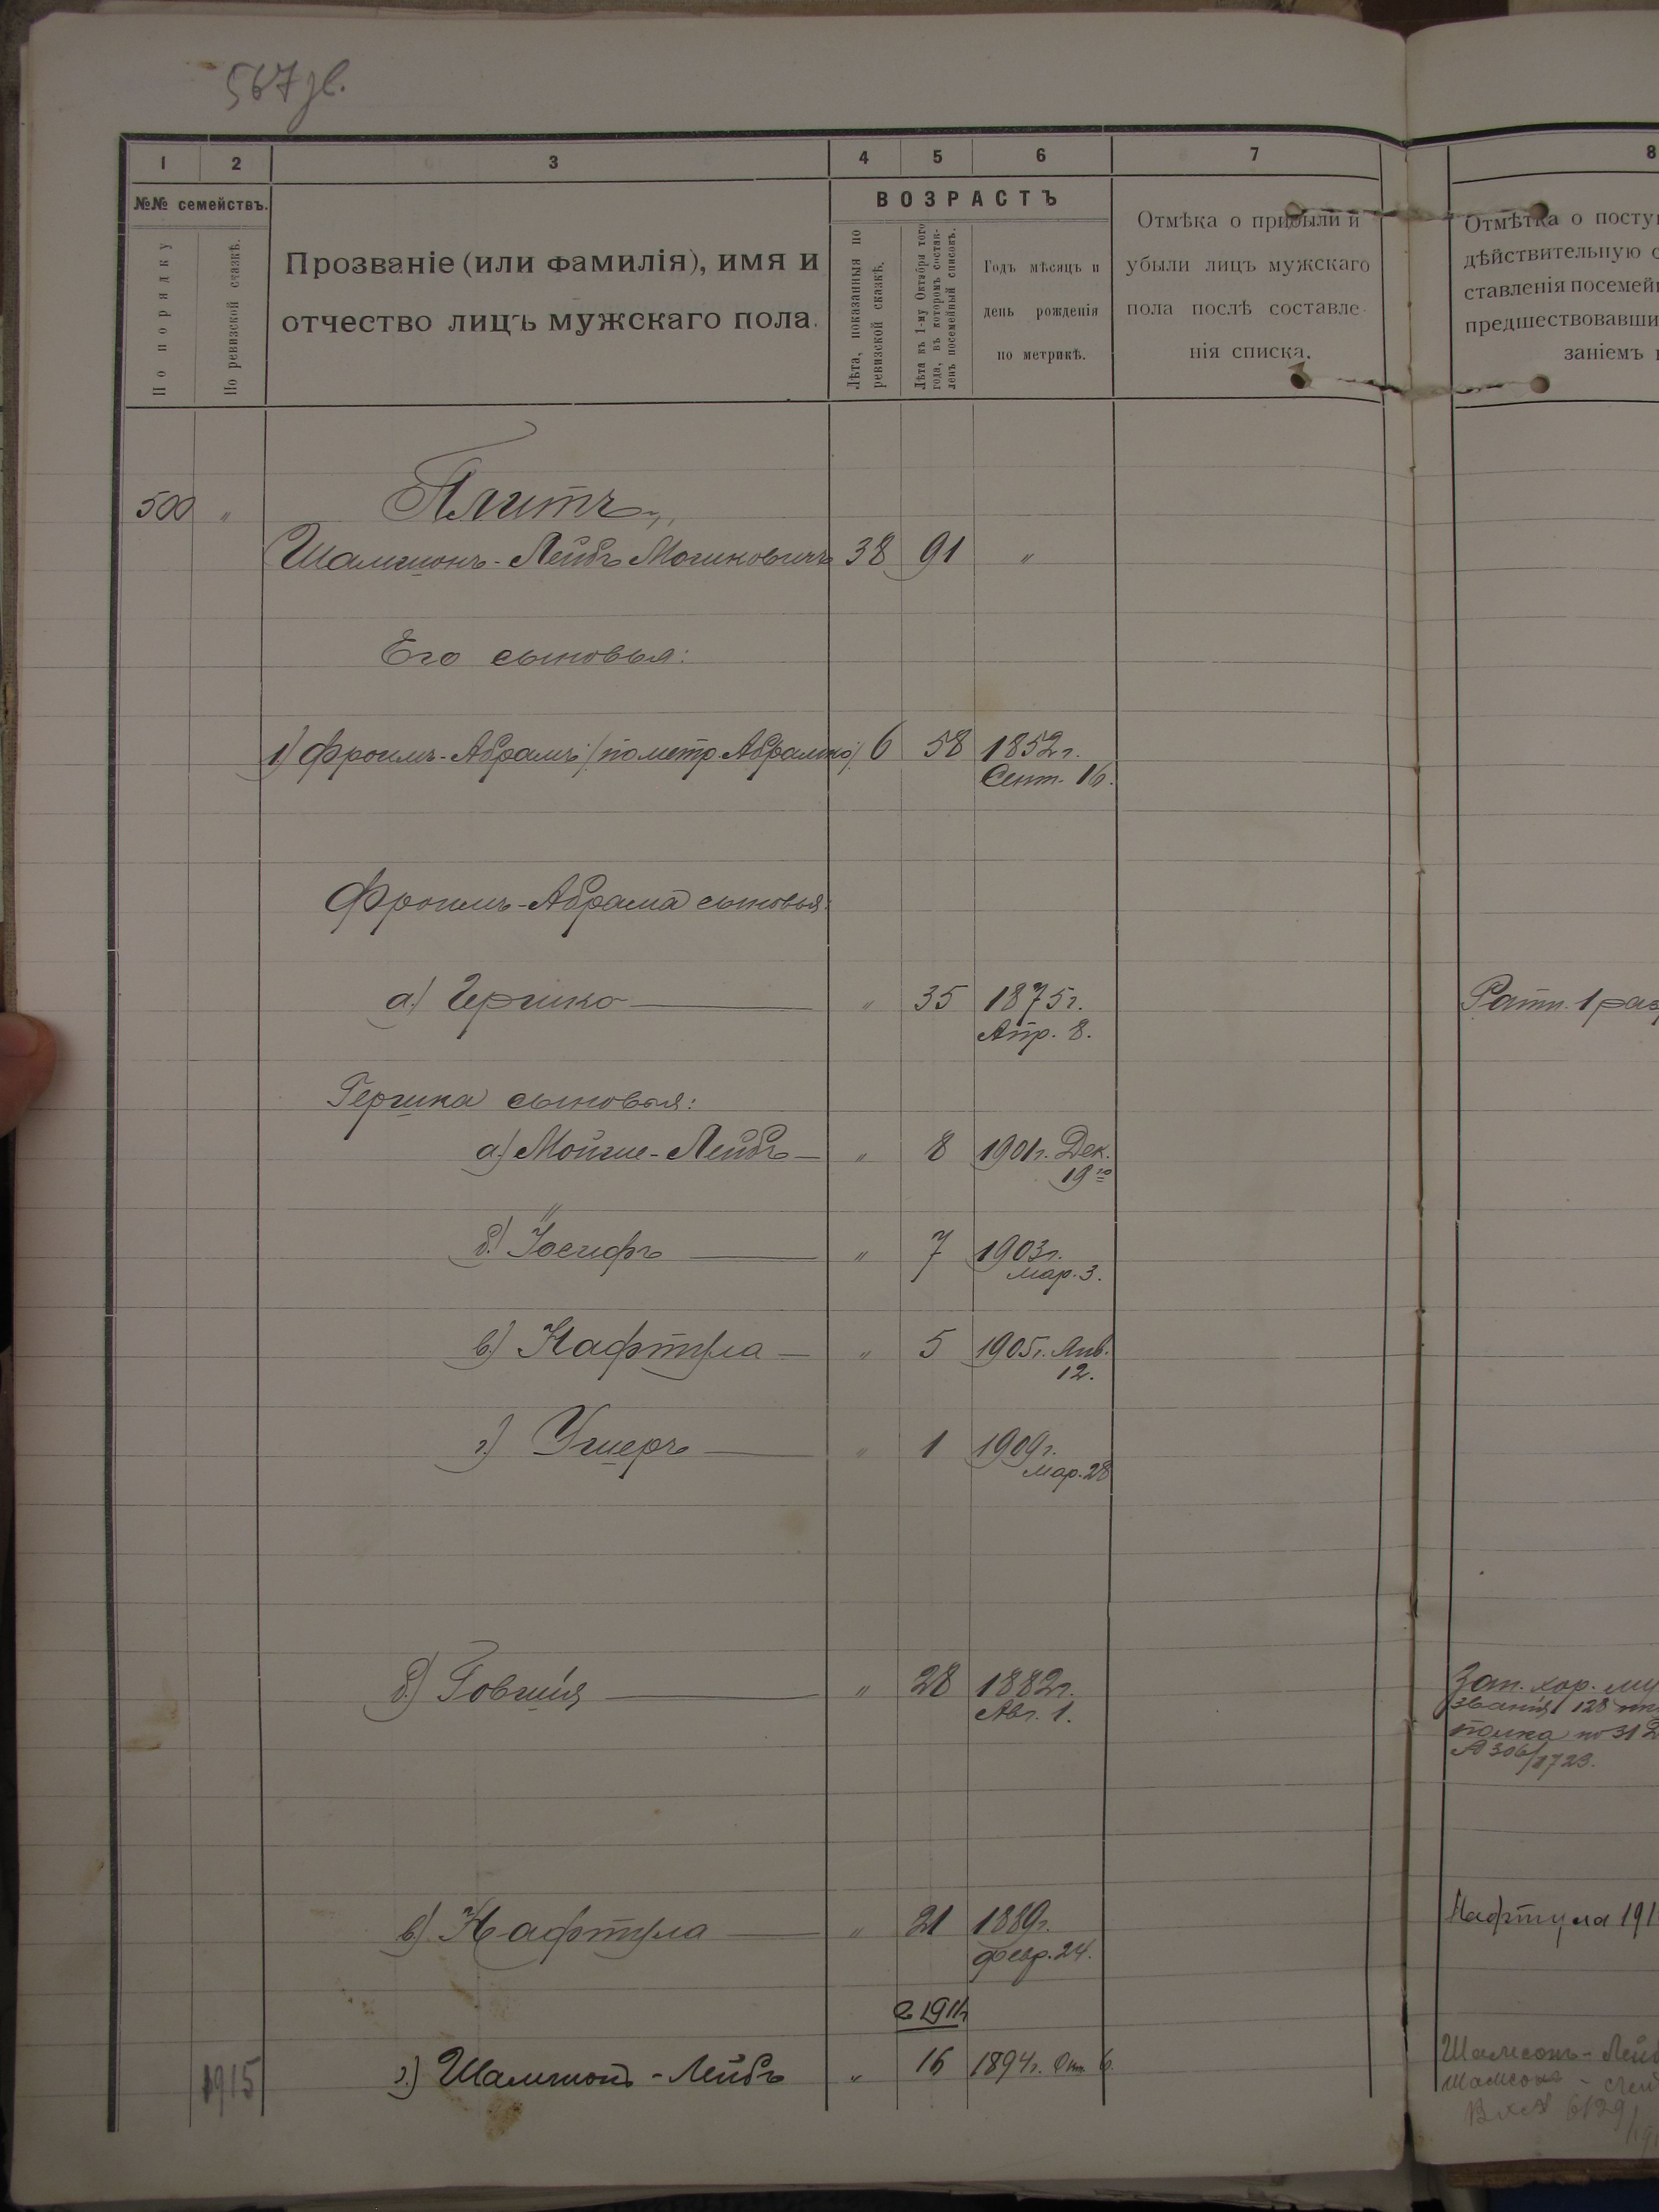 567
1 2 3 4 5 6 7 8
№№ семействъ.
По порядку
По ревизской сказкѣ.
Прозваніе (или фамилія), имя и
отчество лицъ мужскаго пола.
ВОЗРАСТЪ
Лѣта, показанныя по
ревизской сказкѣ.
Лѣта къ 1-му Октября того
года, въ которомъ состав-
ленъ посемейный списокъ.
Годъ мѣсяцъ и
день рожденія
по метрикѣ.
Отмѣка о прибыли и
убыли лицъ мужскаго
пола послѣ составле-
нія списка.
Отмѣтка о посту
дѣйствительную с
ставленія посемей
предшествовавши
заніемъ
500 "
Плитъ,
Шамшонъ-Лейбъ Мошковичъ 38 91 "
Его сыновья:
1) Фроимъ-Абрамъ (по метр. Абрамко) 6 58 1852 г.
Сент. 16.
Фроимъ-Абрама сыновья:
а) Гершко " 35 1875 г.
Апр. 8.
Гершка сыновья:
а) Мойше-Лейбъ " 8 1901 г. Дек.
19го
б) Іосифъ " 7 1903 г.
Мар. 3.
в) Нафтула " 5 1905 г. Янв.
12.
г) Ушеръ " 1 1909 г.
Мар. 28
б) Говшія " 28 1882 г.
Авг. 1.
в) Нафтула " 21 1889 г.
Февр. 24.
г) Шамшонъ-Лейбъ " 16 1894 г. Окт 6.
1915
Ратн. 1 раз
Зап. хор. му
званія 128
полка по 31
306/1723.
Нафтула 191
Шамсонъ-Лей
Шамсонъ
6129